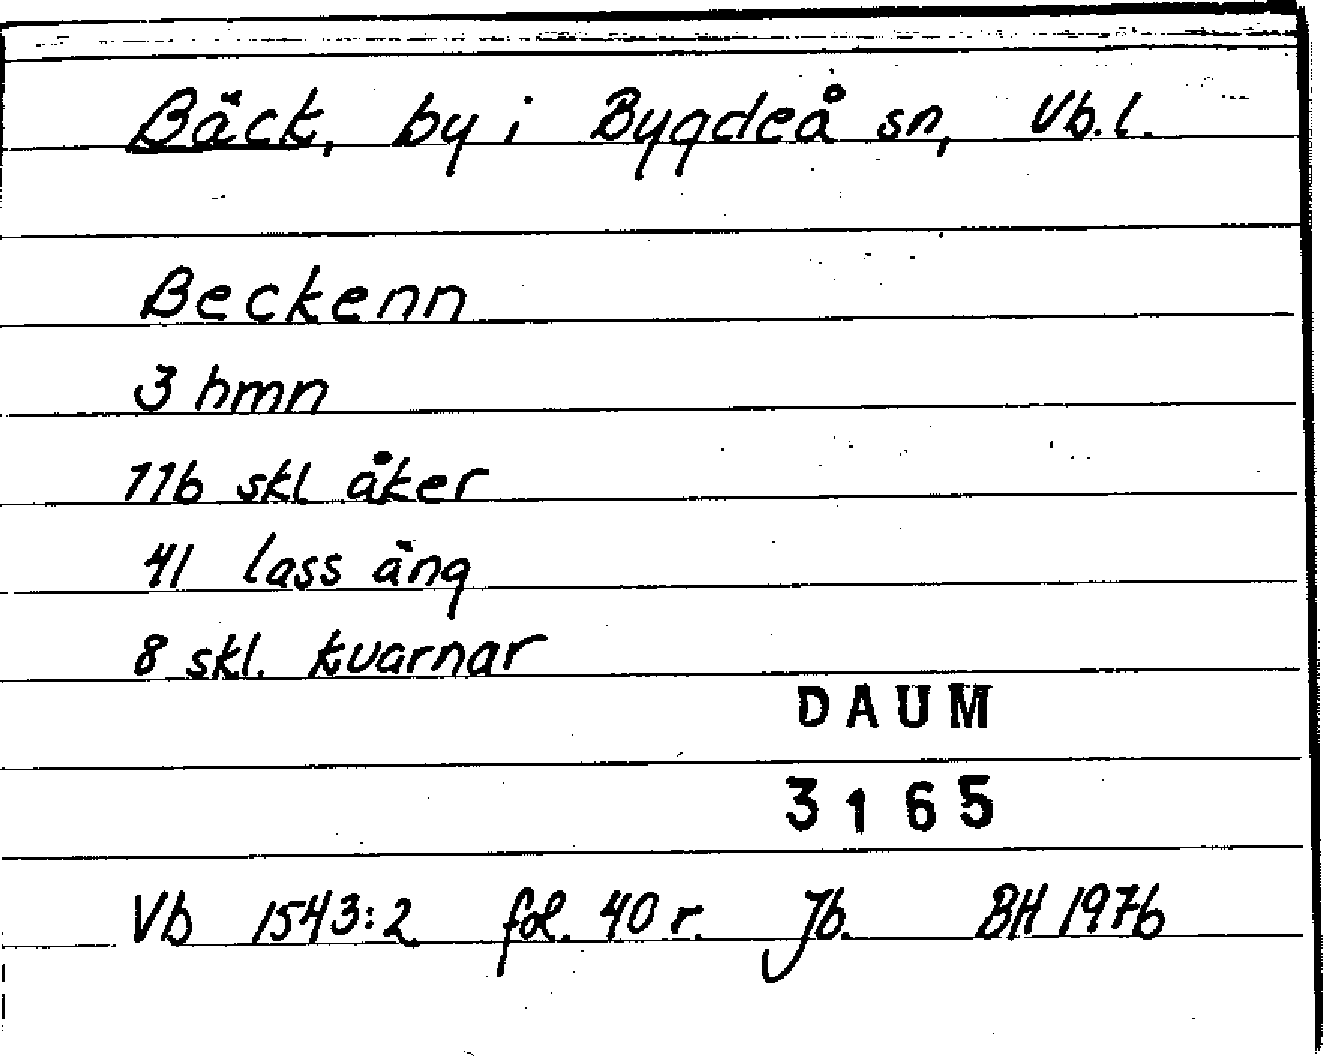 Bäck, by i Bygdeå sn, Vb.l.
Beckenn
3 hmn
116 skl åker
41 lass äng
8 skl. kvarnar
DAUM
3165
Vb 1543:2 fol. 40 r. Jb. BH 1976